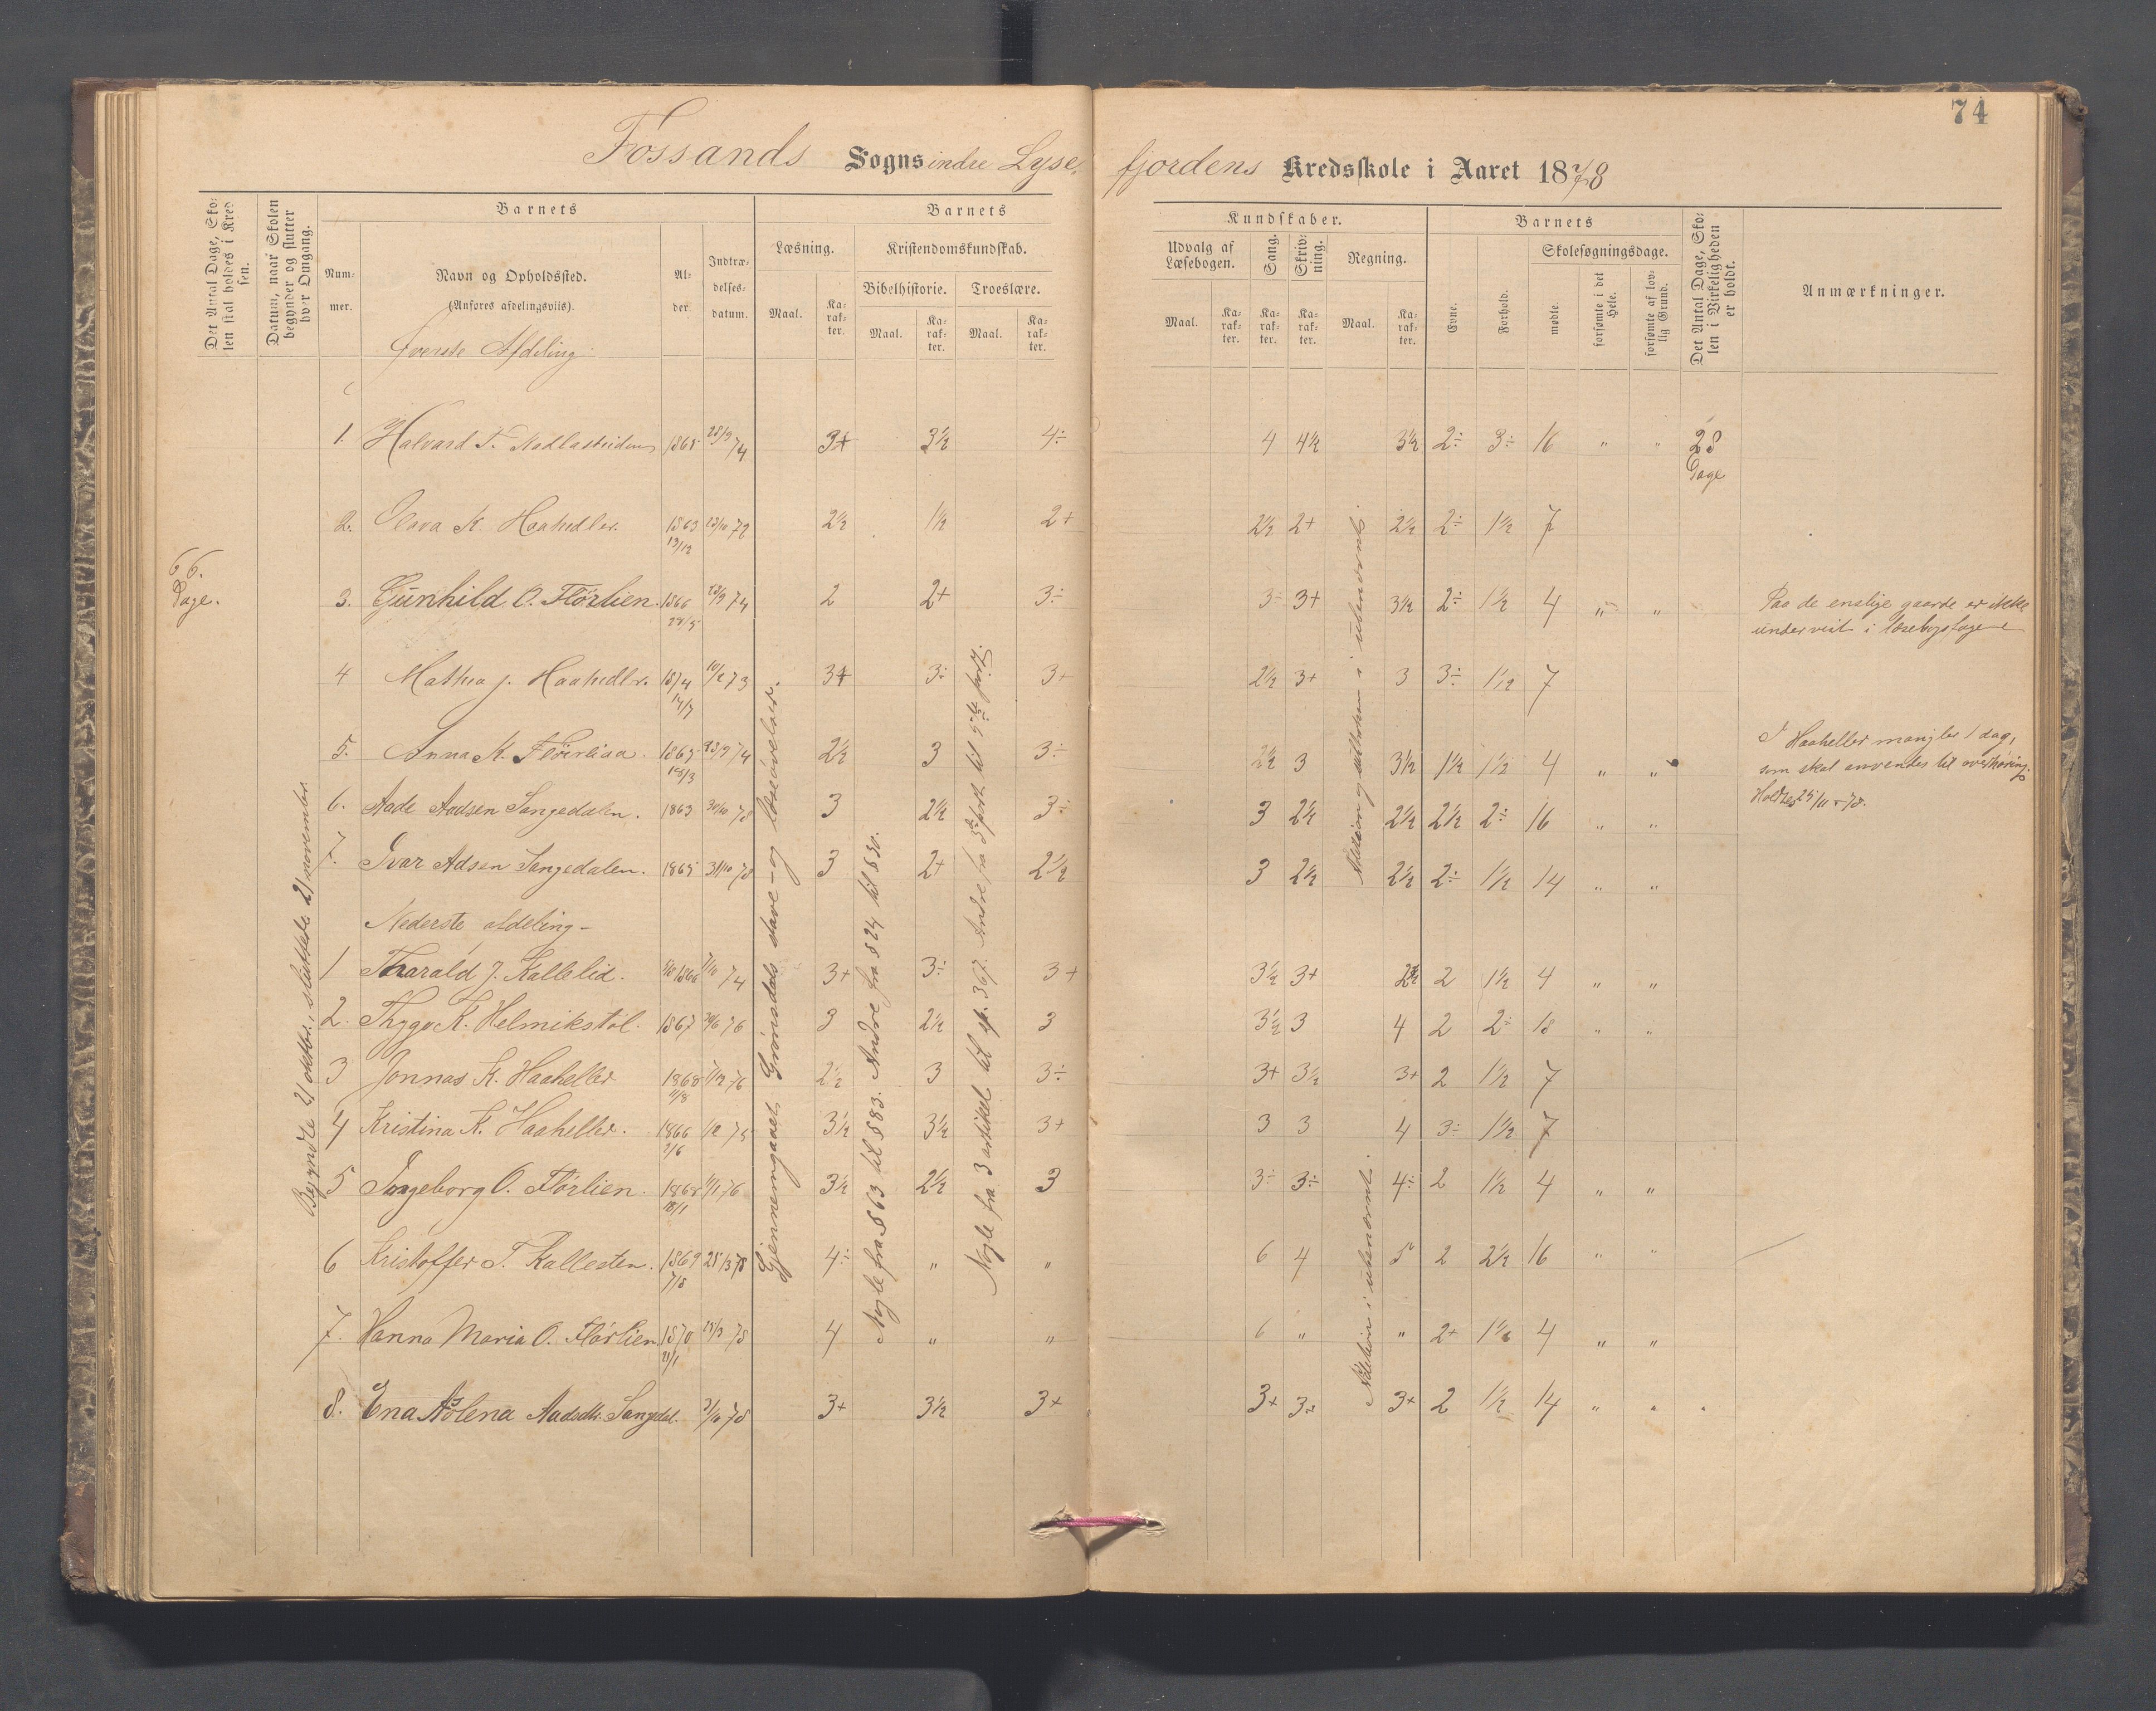 74
Fossands Sogns indre Lyse fjordens Kredsskole i Aaret 1878
Det Antal Dage, Skolen skal holdes i Kredsen.
Datum, naar Skolen begynder og slutter hver Omgang.
Barnets
Nummer.
Navn og Opholdssted.
(Anføres afdelingsviis).
Alder.
Indtrædelsesdatum.
Barnets
Læsning.
Maal.
Karakter.
Kristendomskundskab.
Bibelhistorie.
Maal.
Karakter.
Troeslære.
Maal.
Karakter.
Kundskaber.
Udvalg af Læsebogen.
Maal.
Karakter.
Sang.
Karakter.
Skrivning.
Karakter.
Regning.
Maal.
Karakter.
Barnets
Evne.
Forhold.
Skolesøgningsdage.
mødte.
forsømte i det Hele.
forsømte af lovlig Grund.
Det Antal Dage, Skolen i Virkeligheden er holdt.
Anmærkninger.
Øverste Afdeling
1. Halvard T. 1865 28/9 74 3+ 3½ 4÷ 4 4½ 3½ 2÷ 3÷ 16 " " 28 Dage
2. Olava K. Haahedler 1863 13/12 23/10 72 2½ 1½ 2+ 2½ 2+ 2½ 2÷ 1½ 7
66. Dage.
3. Gunhild O. Flörlien. 1866 28/5 23/9 74 2 2+ 3÷ 3÷ 3+ 3½ 2÷ 1½ 4 " "
Paa de enslige gaarde er ikke
undervist i læsebogstagene
4 Mathea J. Haahedler. 1874 14/7 10/2 73 3+ 3÷ 3+ 2½ 3+ 3 3÷ 1½ 7
5. Anna K. 1865 23/9 74 2½ 3 3÷ 2½ 3 3½ 1½ 1½ 4 " "
I Haaheller mangler 1 dag,
som skal anvendes til overhøring.
Holdtes 25/11 - 78.
6. Aade Aadsen Sangedalen. 1863 30/10 78 3 2½ 3÷ 3 2½ 2½ 2½ 2÷ 16 " "
7. Ivar Adsen Sangedalen. 1865 31/10 78 3 2+ 2½ 3 2½ 2½ 2÷ 1½ 14 " "
Nederste afdeling -
1 Tharald J. Kallelid. 1866 74 3+ 3÷ 3+ 3½ 3+ 2½ 2 1½ 4 " "
2. K. Helmikstöl. 1867 76 3 2½ 3 3½ 3 4 2 2÷ 18 " "
3 Jonnas K. Haaheller 1868 11/8 1/12 76 2½ 3 3÷ 3+ 3½ 3+ 2 1½ 7
4 Kristina K. Haaheller. 1866 2/6 1/2 75 3½ 3½ 3+ 3 3 4 3÷ 1½ 7
5 Ingeborg O. Flörlien. 1868 18/1 76 3½ 2½ 3 3÷ 3÷ 4÷ 2 1½ 4 " "
6 Kristoffer T. Kallesten. 1869 7/8 25/3 78 4÷ " " 6 4 5 2 2½ 16 " "
7. Hanna Maria O. Flörlien 1870 21/1 25/3 78 4 " " 6 " " 2+ 1½ 4 " "
8. Ena Aolena Aadsdtr. Sangdal 31/10 78 3+ 3½ 3+ 3+ 3÷ 3+ 2 1½ 14 " " "
Begyndte 21 oktbr., sluttede 21 november.
Gjennemgaaet Grönsdals stave- og læseövelser.
Nogle fra § 63 til § 83. Andre fra § 24 til § 30.
Nogle fra 3 artikel til sp. 367. Andre fra 3die part til 5te part.
i ubenævnte
Addition i ubenævnte